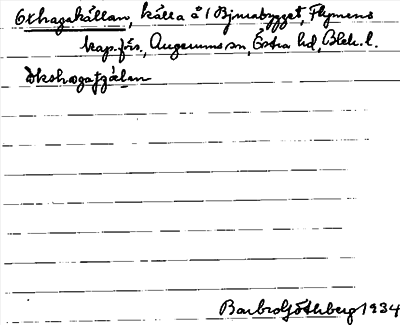 Oxhagakällan, källa å / Bjurabygget, Flymens
kap.förs., Augerums sn, Östra hd, Blek. l.
Barbro Göthberg 1934